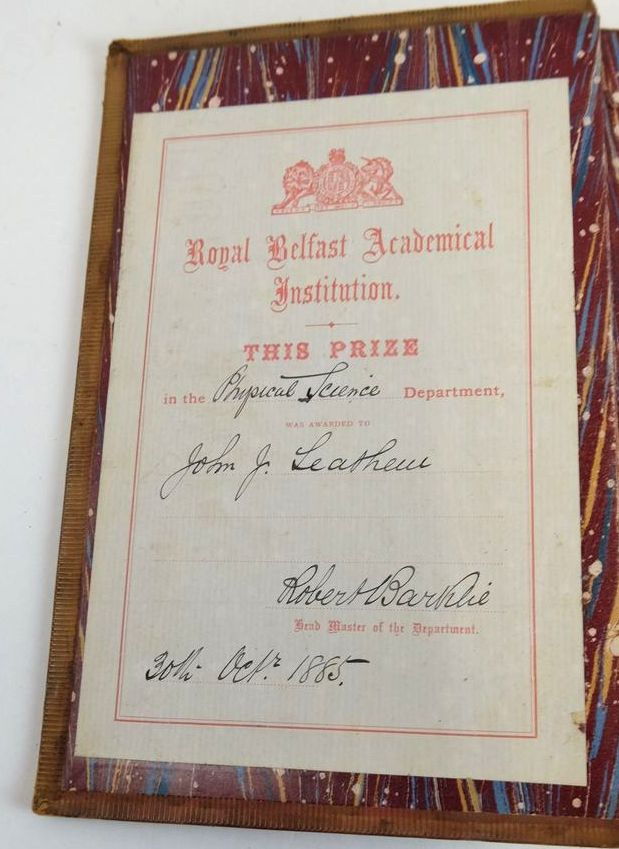 Royal Belfast Academical
Institution.
THIS PRIZE
in the Physical Science Department,
WAS AWARDED TO
John J. Leathem
Robert Barklie
Head Master of the Department.
30th Octr. 1885.